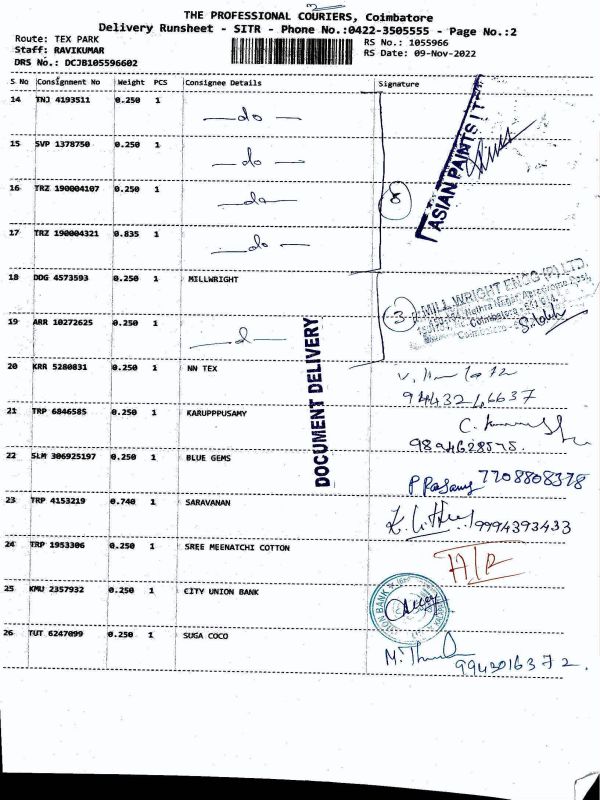 THE PROFESSIONAL COURIERS, Coimbatore
Delivery Runsheet - SITR - Phone No.:0422-3505555 - Page No.:2
Route: TEX PARK
RS No.: 1055966
Staff: RAVIKUMAR
RS Date: 09-Nov-2022
DRS No.: DCJB105596602
S No Consignment No Weight PCS Consignee Details Signature
14 TNJ 4193511 0.250 1 —do—
15 SVP 1378750 0.250 1 —do—
16 TRZ 190004107 0.250 1 —do—
17 TRZ 190004321 0.835 1 —do—
ASIAN PAINTS
18 DDG 4573593 0.250 1 MILLWRIGHT
MILL WRIGHT ENGG (P) LTD.
3
19 ARR 10272625 0.250 1
Coimbatore
20 KRR 5280831 0.250 1 NN TEX
21 TRP 6846585 0.250 1 KARUPPPUSAMY
22 SLM 306925197 0.250 1 BLUE GEMS
7708808378
23 TRP 4153219 0.740 1 SARAVANAN
9994393433
24 TRP 1953306 0.250 1 SREE MEENATCHI COTTON
25 KMU 2357932 0.250 1 CITY UNION BANK
26 TUT 6247099 0.250 1 SUGA COCO
9942016372.
DOCUMENT DELIVERY